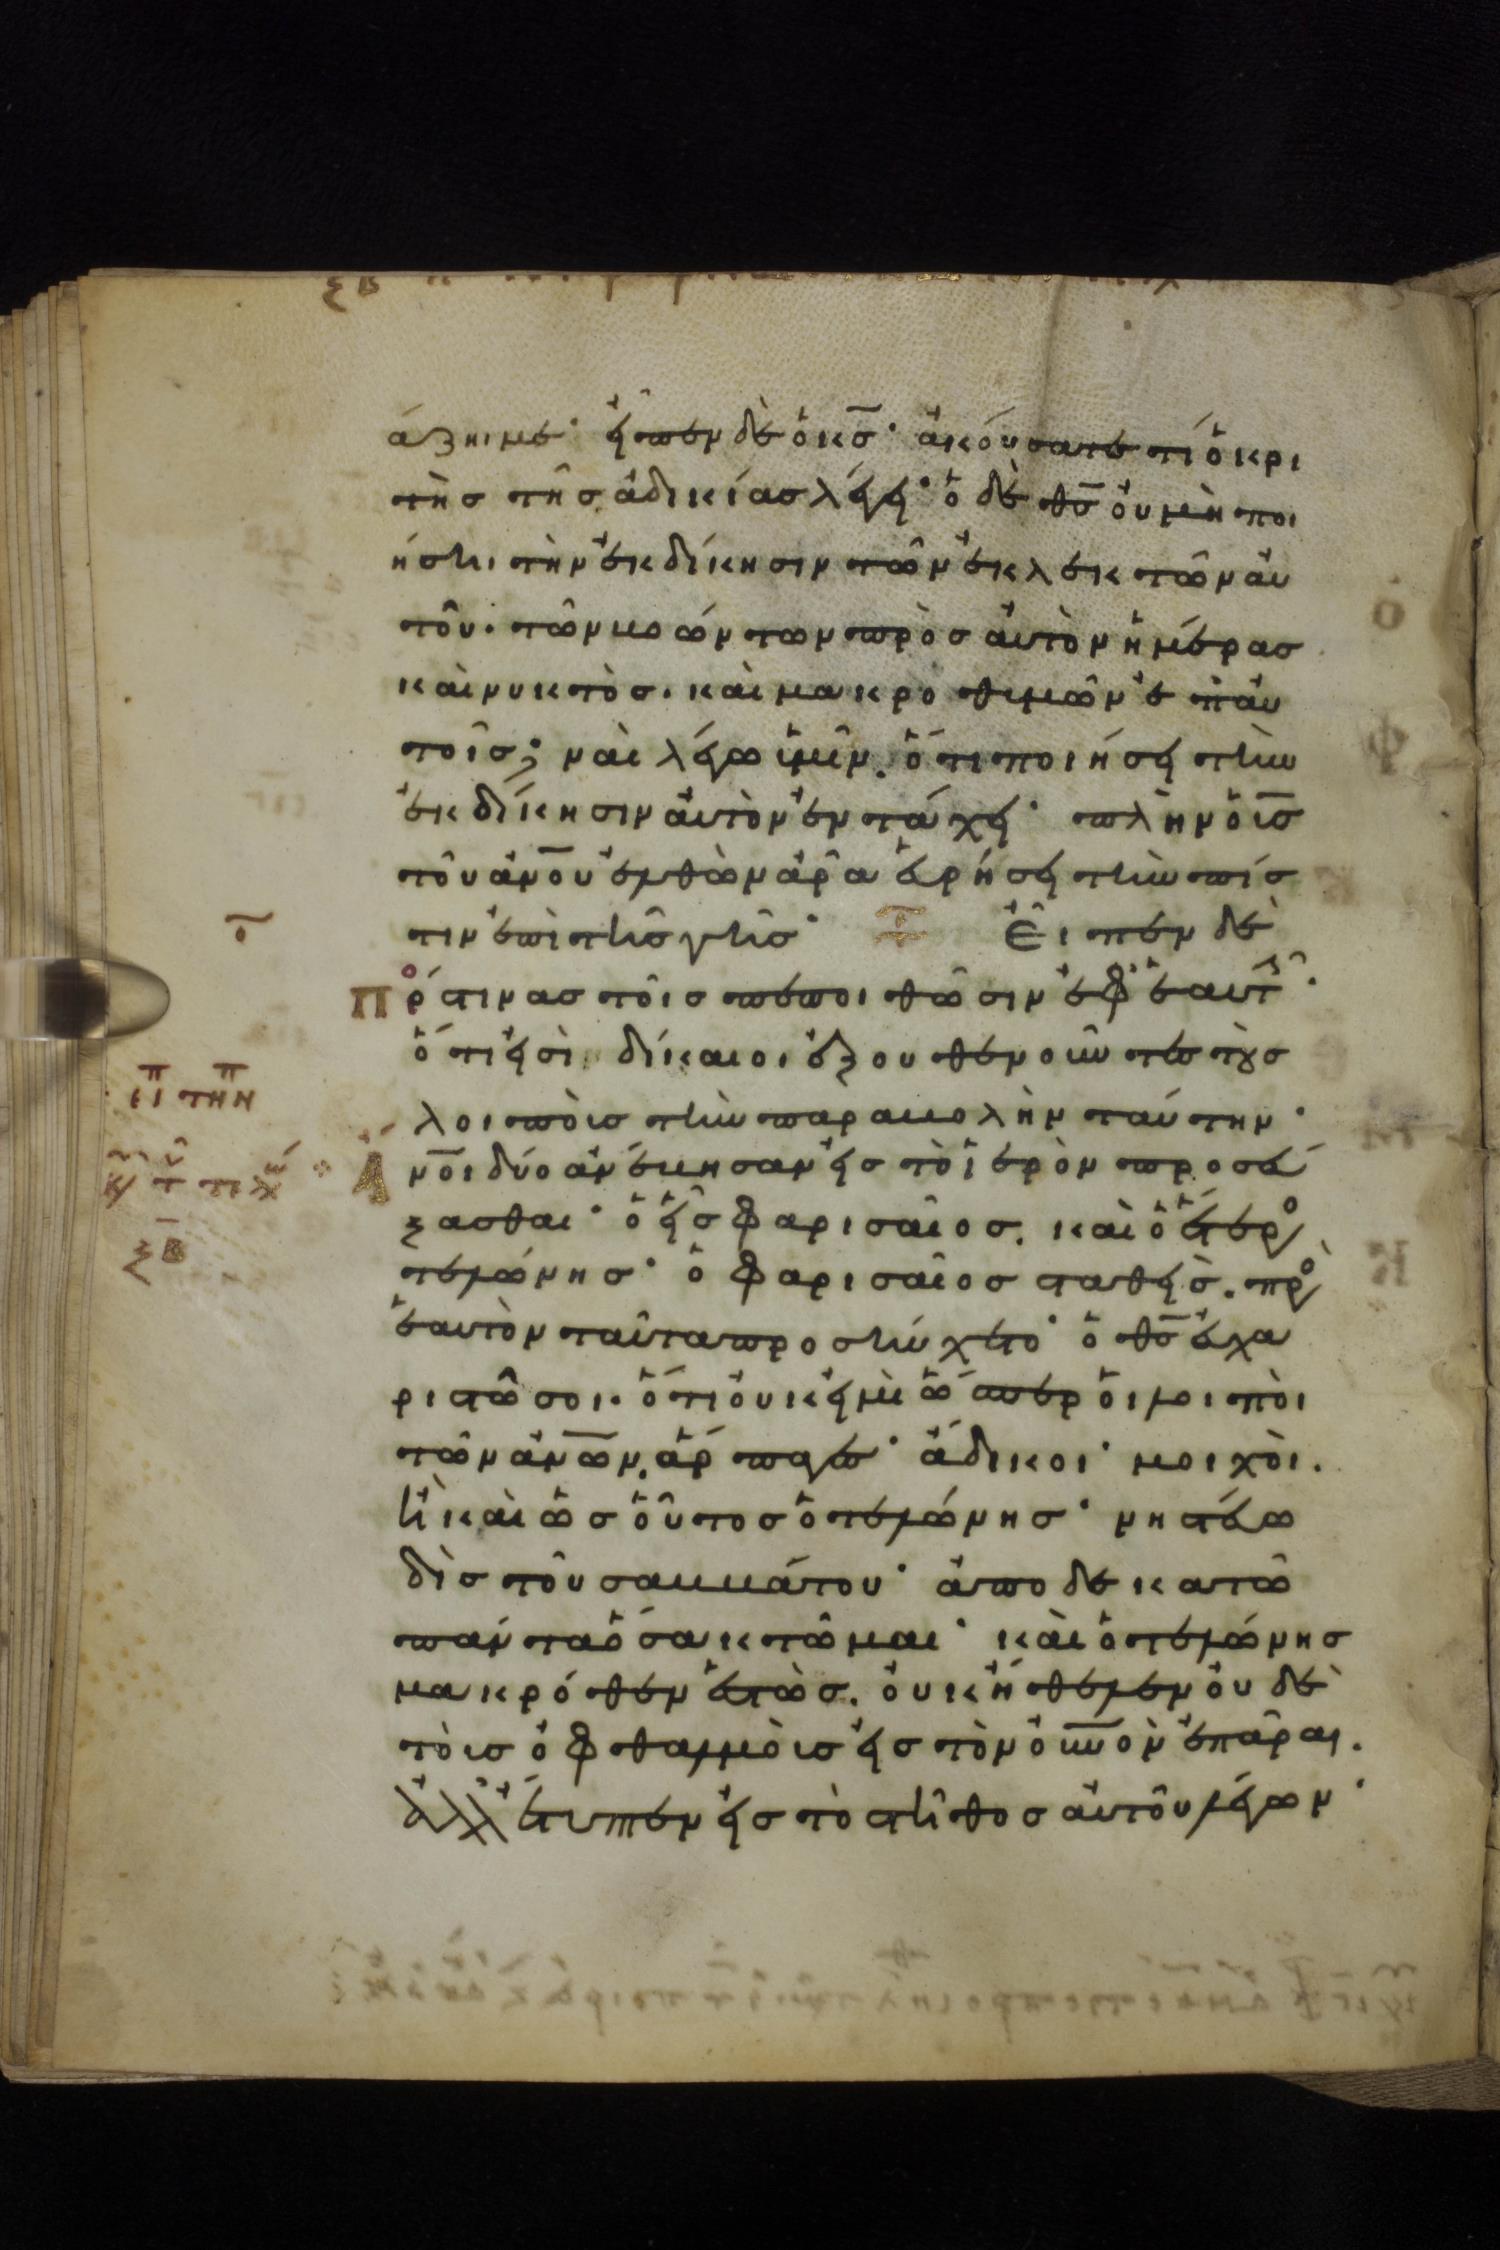 άζηι με· εἶπεν δὲ ὁ κ̅ς̅· ἀκούσατε τί ὁ κρι
τὴς τῆς ἀδικίας λέγει· ὁ δὲ θ̅ς̅ οὐ μὴ ποι
ήσηι τὴν ἐκδίκησιν τῶν ἐκλεκτῶν αὐ
τοῦ. τῶν βοώντων πρὸς αὐτὸν ἡμέρας
καὶ νυκτὸς. καὶ μακροθυμῶν ἐπ' αὐ
τοῖς; ναὶ λέγω ὑμῖν. ὅτι ποιήσει τὴν
ἐκδίκησιν αὐτὸν ἐν τάχει· πλὴν ὁ ι̅ς̅
τοῦ α̅ν̅ο̅υ̅ ἐλθὼν ἆρα εὑρήσει τὴν πίσ
τιν ἐπὶ τῆς γῆς· Εἶπεν δὲ
πρό τινας τοῖς πεποιθῶσιν ἐφ' ἑαυτ
ὅτι εἰσὶ δίκαιοι ἐξουθενοῦντες τοὺς
λοιποῖς τὴν παραβολὴν ταύτην·
Α̅ν̅ο̅ι̅ δύο ἀνέβησαν εἰς τὸ ἱερὸν προσεύ
ξασθαι· ὁ εἷς φαρισαῖος. καὶ ὁ ἕτερο
τελώνης· ὁ φαρισαῖος σταθεὶς. προ
ἑαυτὸν ταῦτα προσηύχετο· ὁ θ̅ς̅ εὐχα
ριστῶ σοι. ὅτι οὐκ εἰμὶ ὥσπερ οἱ λοιποὶ
τῶν α̅ν̅ω̅ν̅. ἅρπαγες· ἄδικοι· μοιχοὶ.
ἢ καὶ ὡς οὗτος ὁ τελώνης· νηστεύω
δὶς τοῦ σαββάτου· ἀποδεκατῶ
πάντα ὅσα κτῶμαι· καὶ ὁ τελώνης
μακρόθεν ἑστὼς. οὐκ ἤθελεν οὐδὲ
τοὶς ὀφθαλμοὶς εἰς τὸν ο̅υ̅ν̅ὸν ἐπᾶραι.
ἀλλ' ἔτυπτεν εἰς τὸ στῆθος αὐτοῦ λέγων·